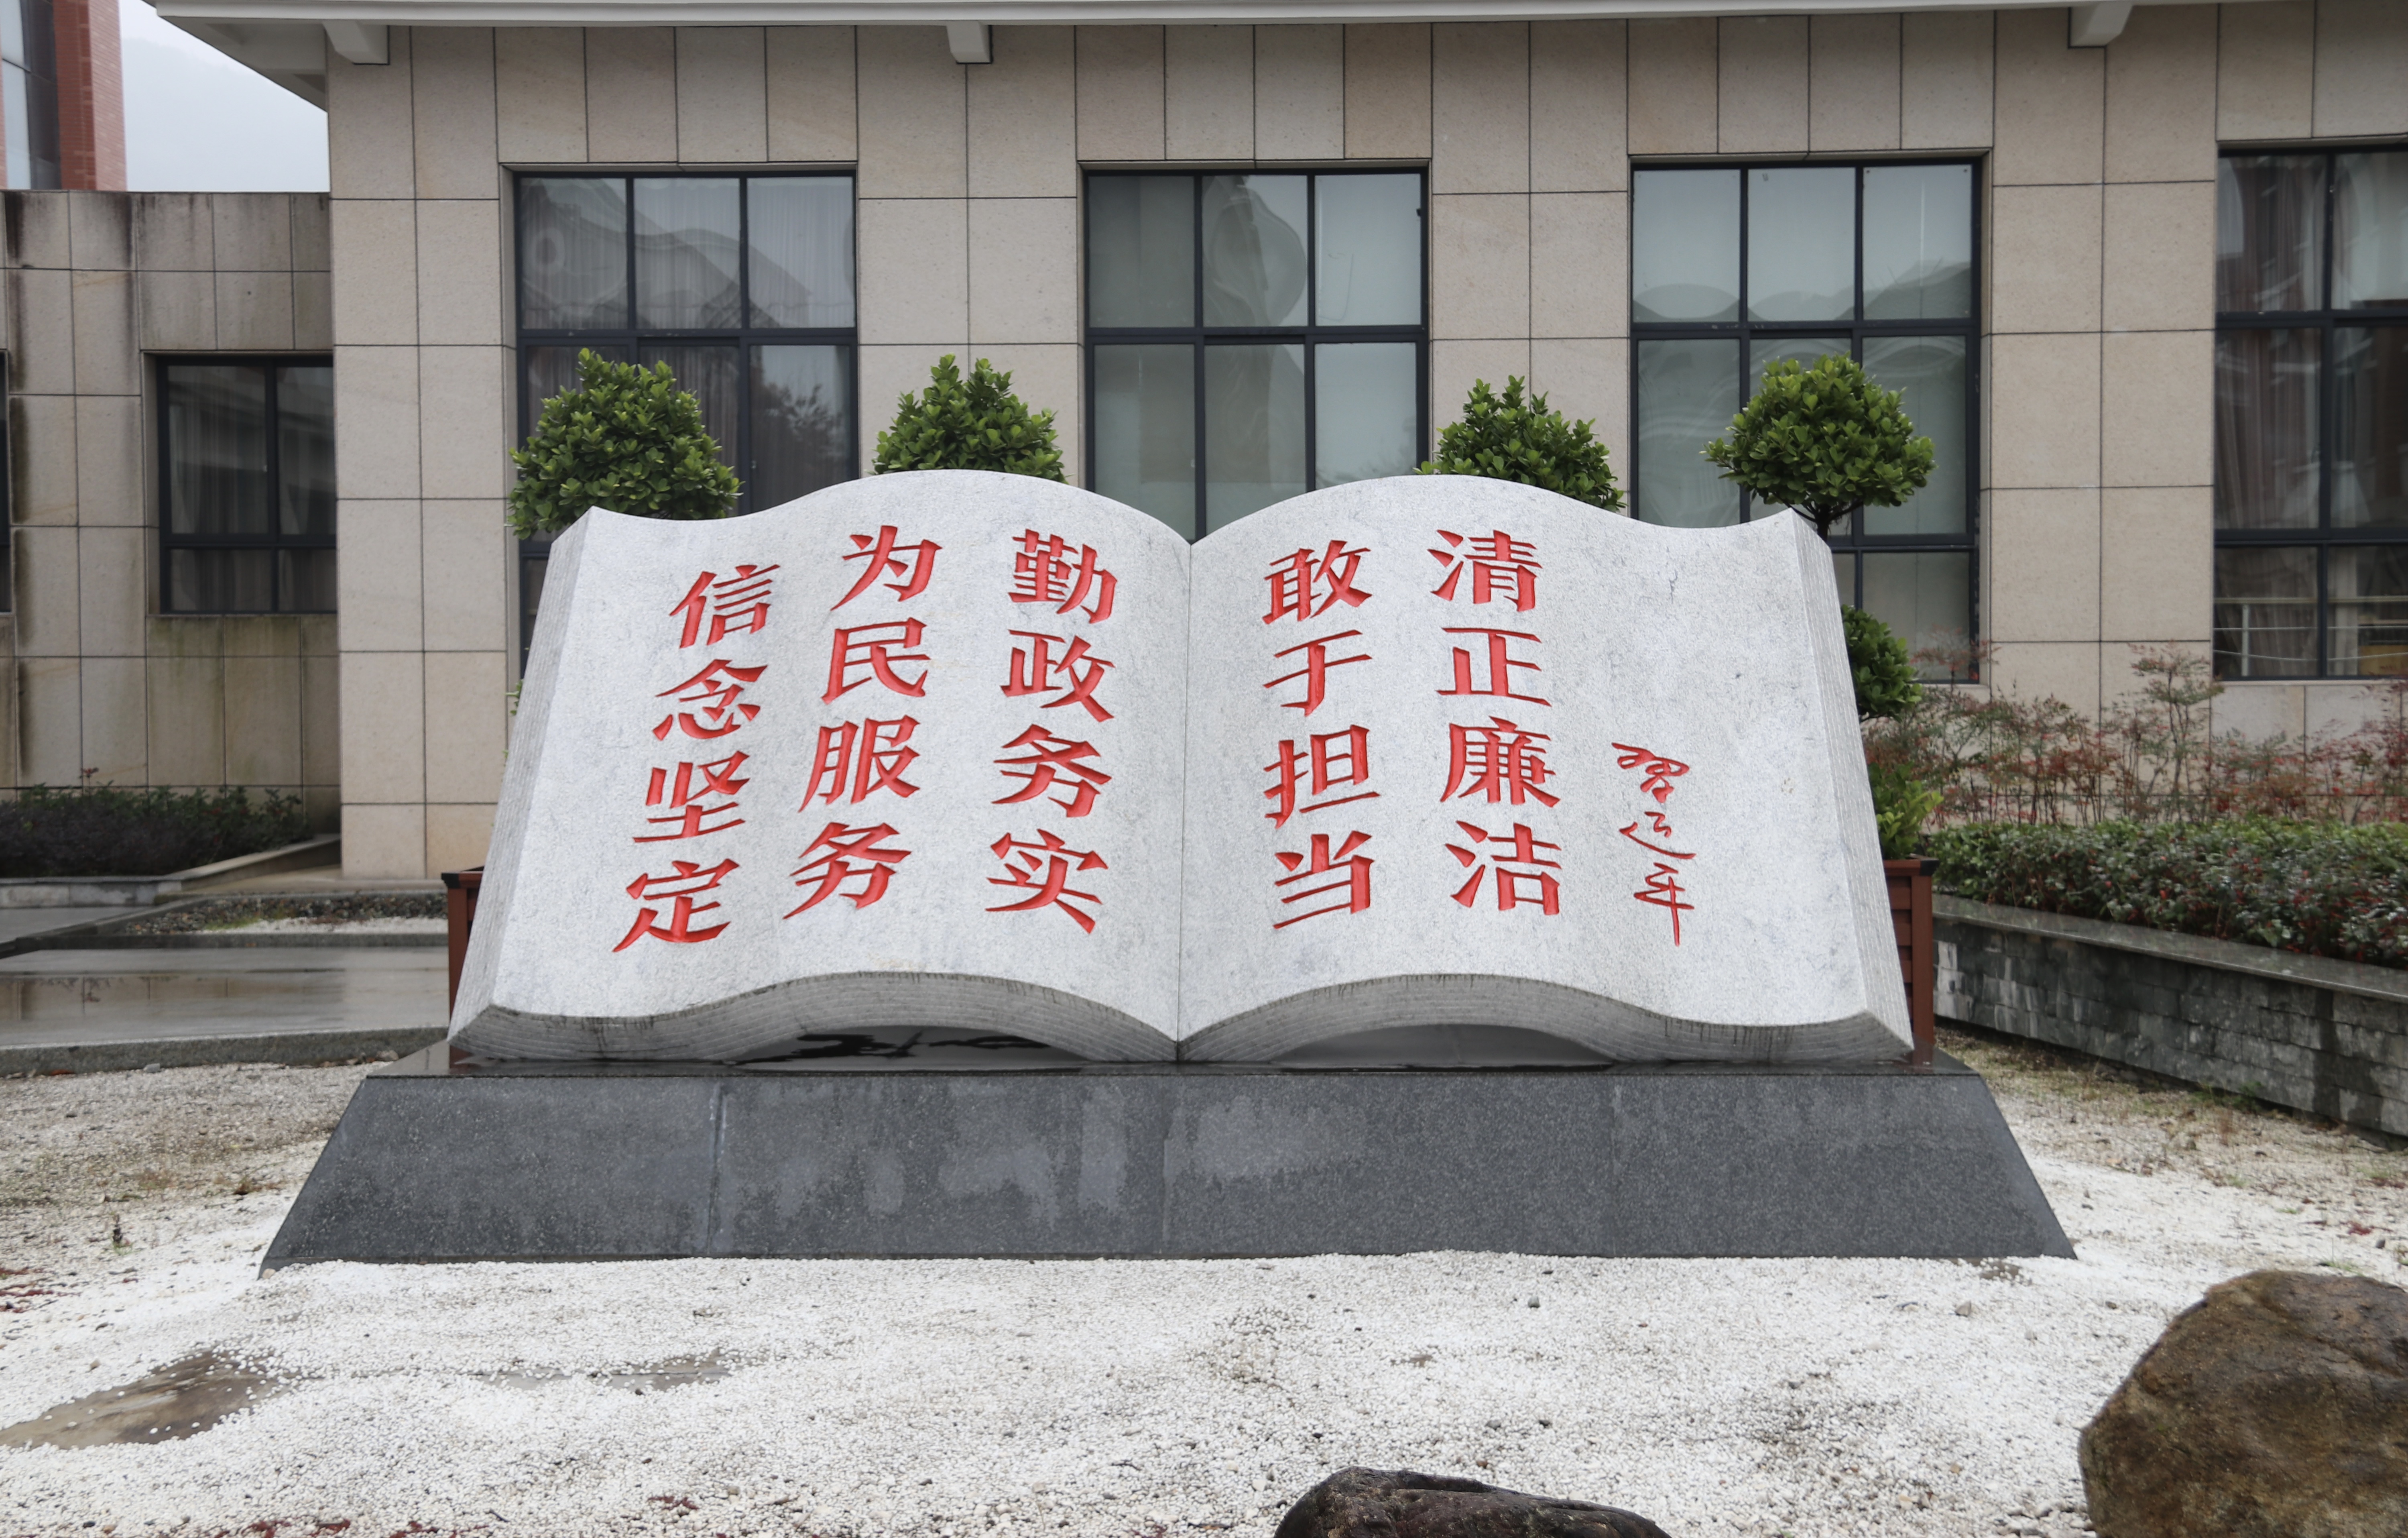 信念坚定
为民服务
勤政务实
敢于担当
清正廉洁
习近平